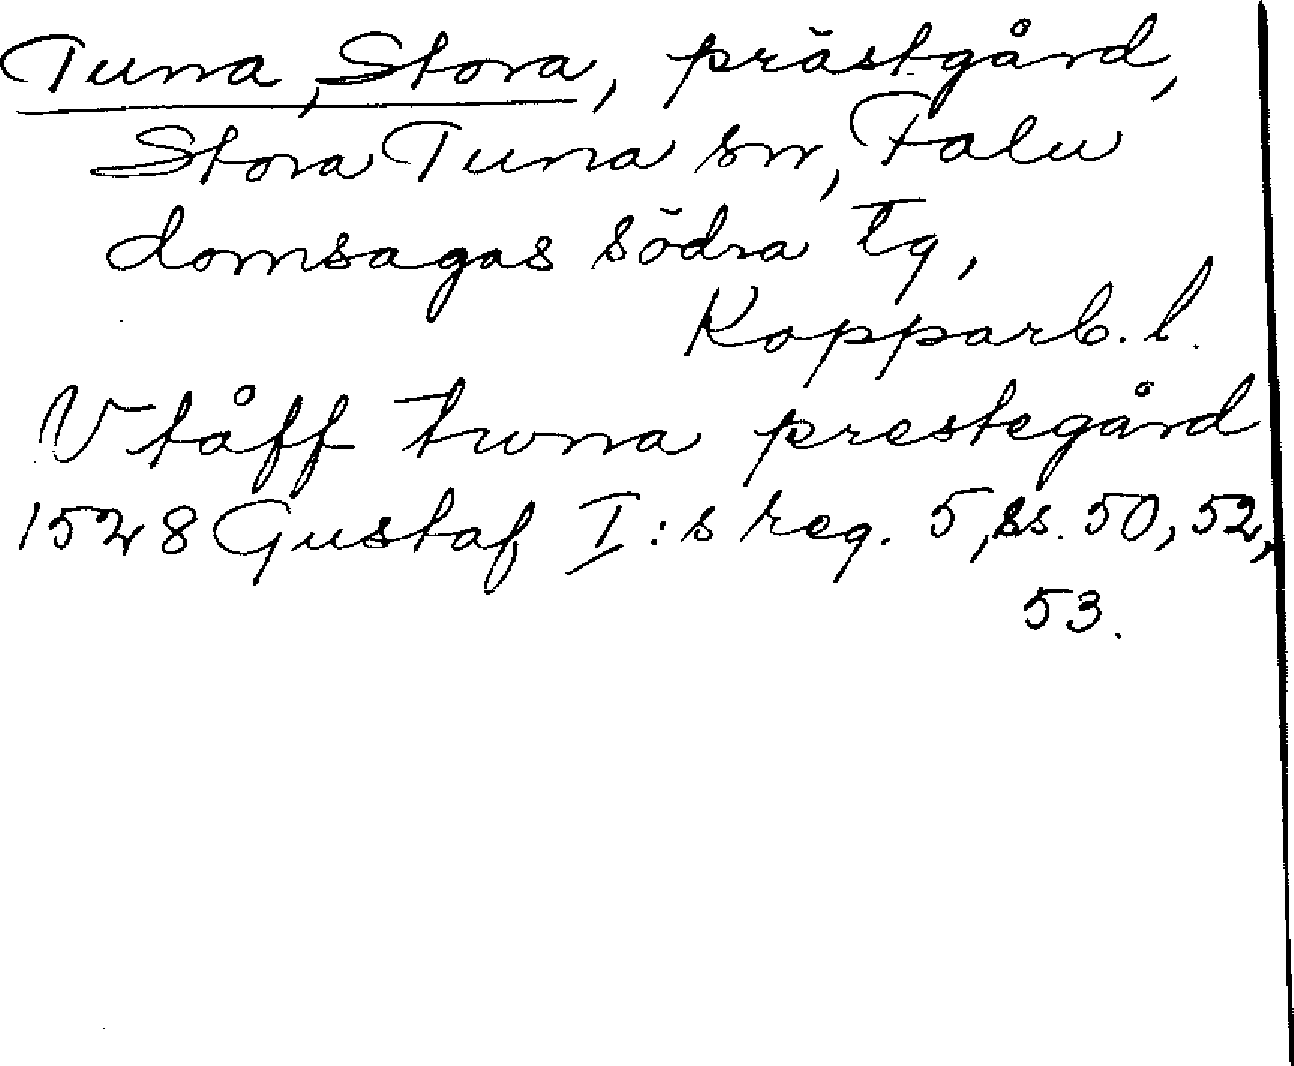 Tuna, Stora, prästgård,
Stora Tuna sn, Falu
domsagas södra tg,
Kopparb. l.
Vtåff tuna prestegård
1528 Gustaf I:s reg. 5, ss. 50, 52,
53.